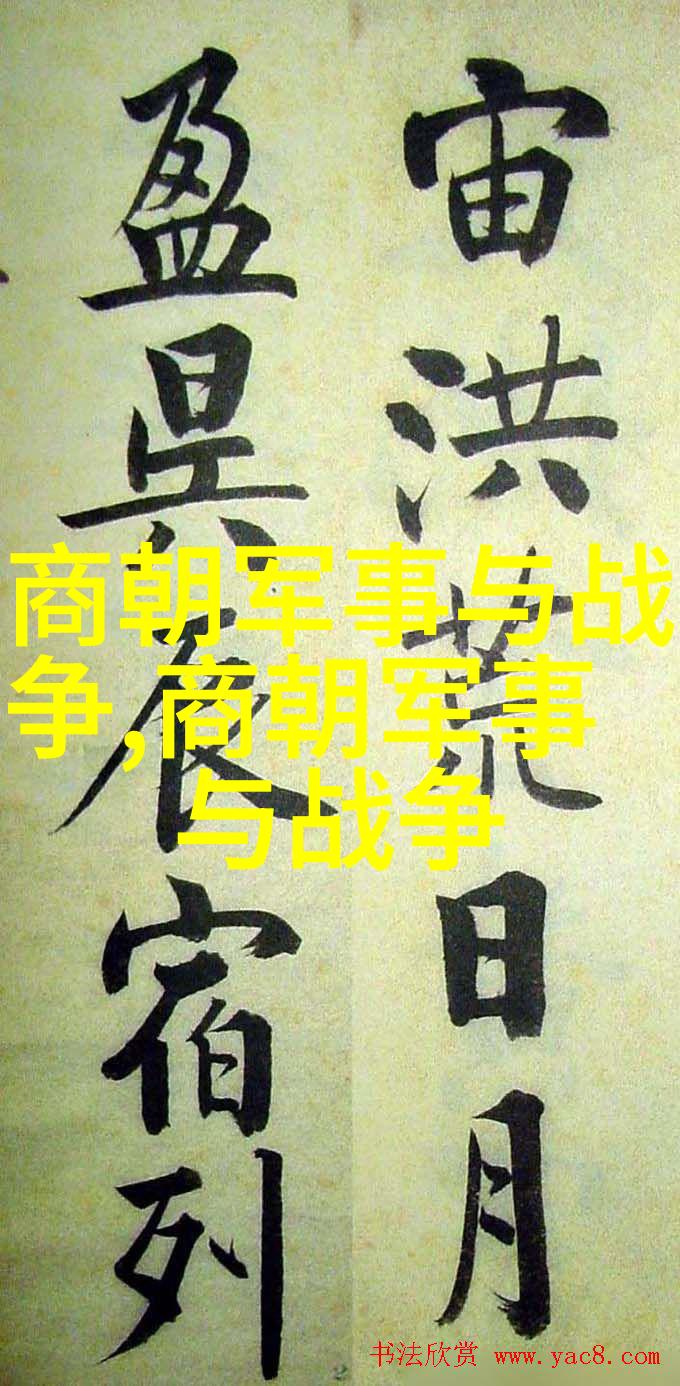 宙洪荒日月
盈昃辰宿列
商朝军事与战
争,商朝军事
与战争
书法欣赏 www.yac8.com
2